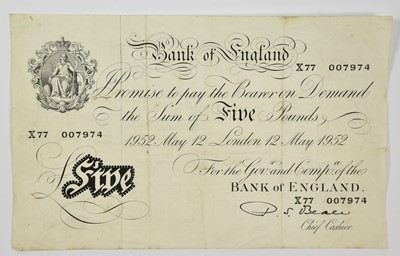 Bank of England
X77 007974
I Promise to pay the Bearer on Demand
the Sum of Five Pounds
X77 007974
1952 May 12 London 12 May 1952
For the Govr. and Compa. of the
BANK OF ENGLAND.
£Five
X77 007974
P. S. Beale
Chief Cashier.